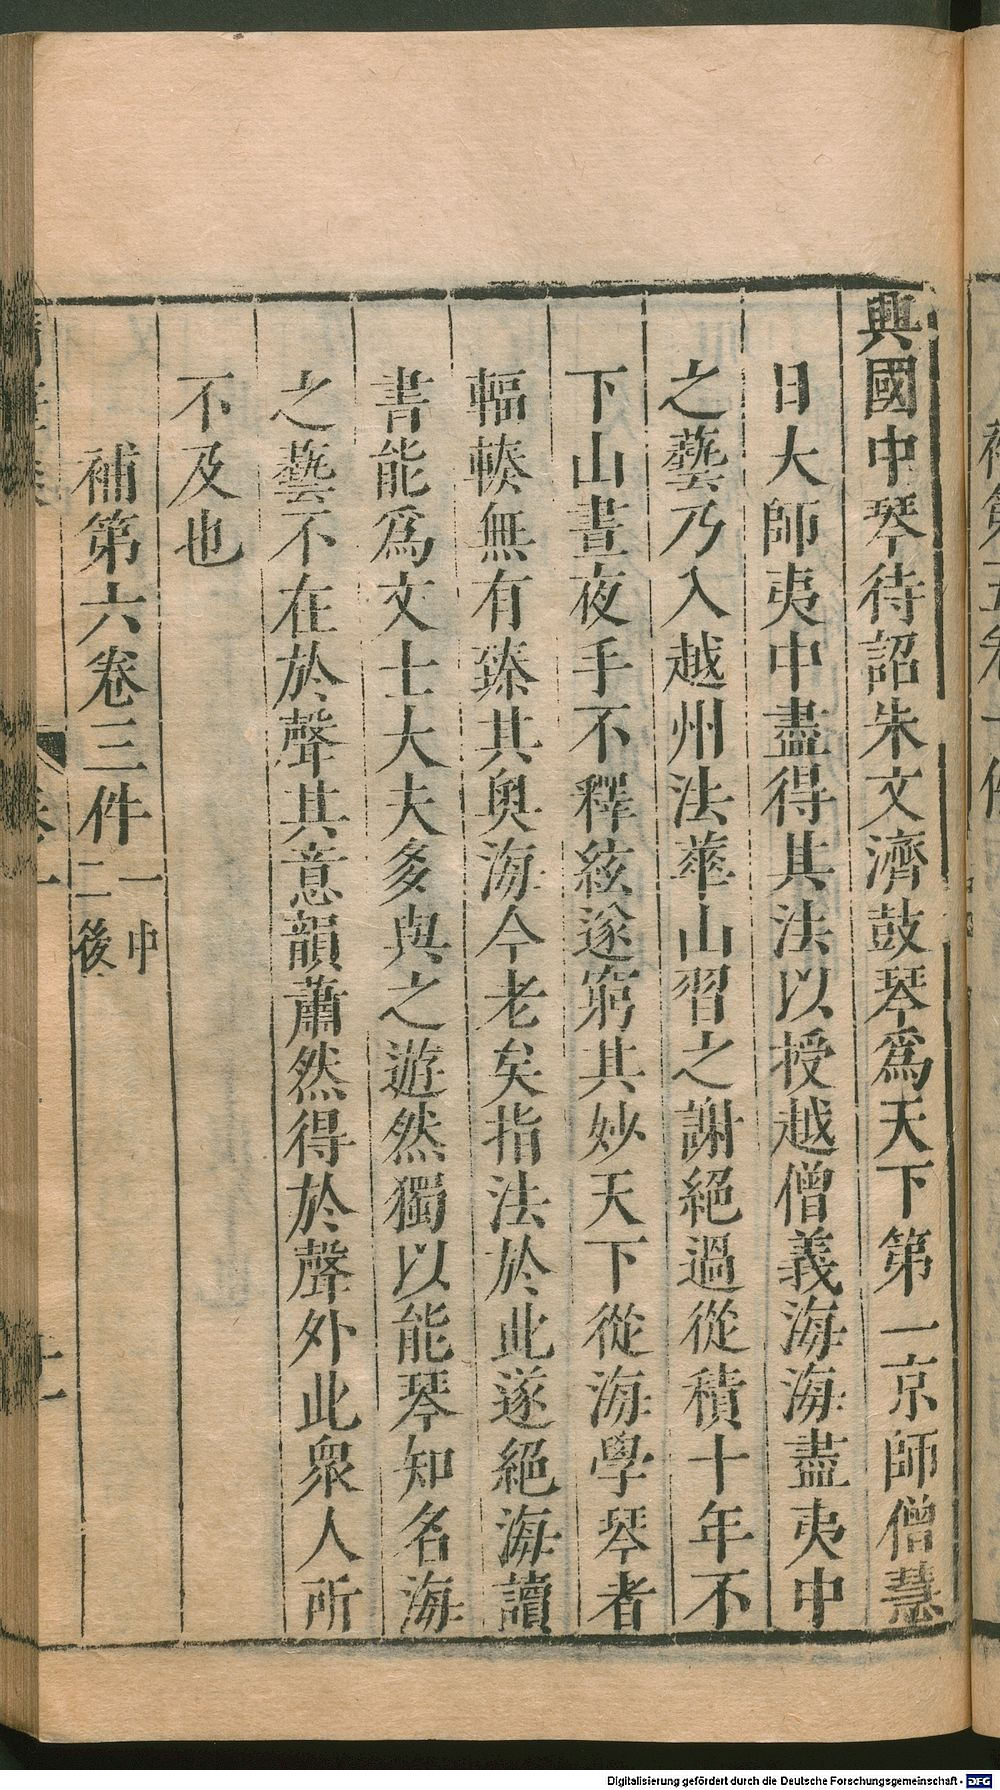 興國中琴待詔朱文濟鼓琴爲天下第一京師僧慧
日大師夷中盡得其法以授越僧義海海盡夷中
之藝乃入越州法華山習之謝絕過從積十年不
下山晝夜手不釋絃遂窮其妙天下從海學琴者
輻輳無有臻其奧海今老矣指法於此遂絕海讀
書能爲文士大夫多與之遊然獨以能琴知名海
之藝不在於聲其意韻蕭然得於聲外此衆人所
不及也
補第六卷三件 一中 二後
Digitalisierung gefördert durch die Deutsche Forschungsgemeinschaft - DFG